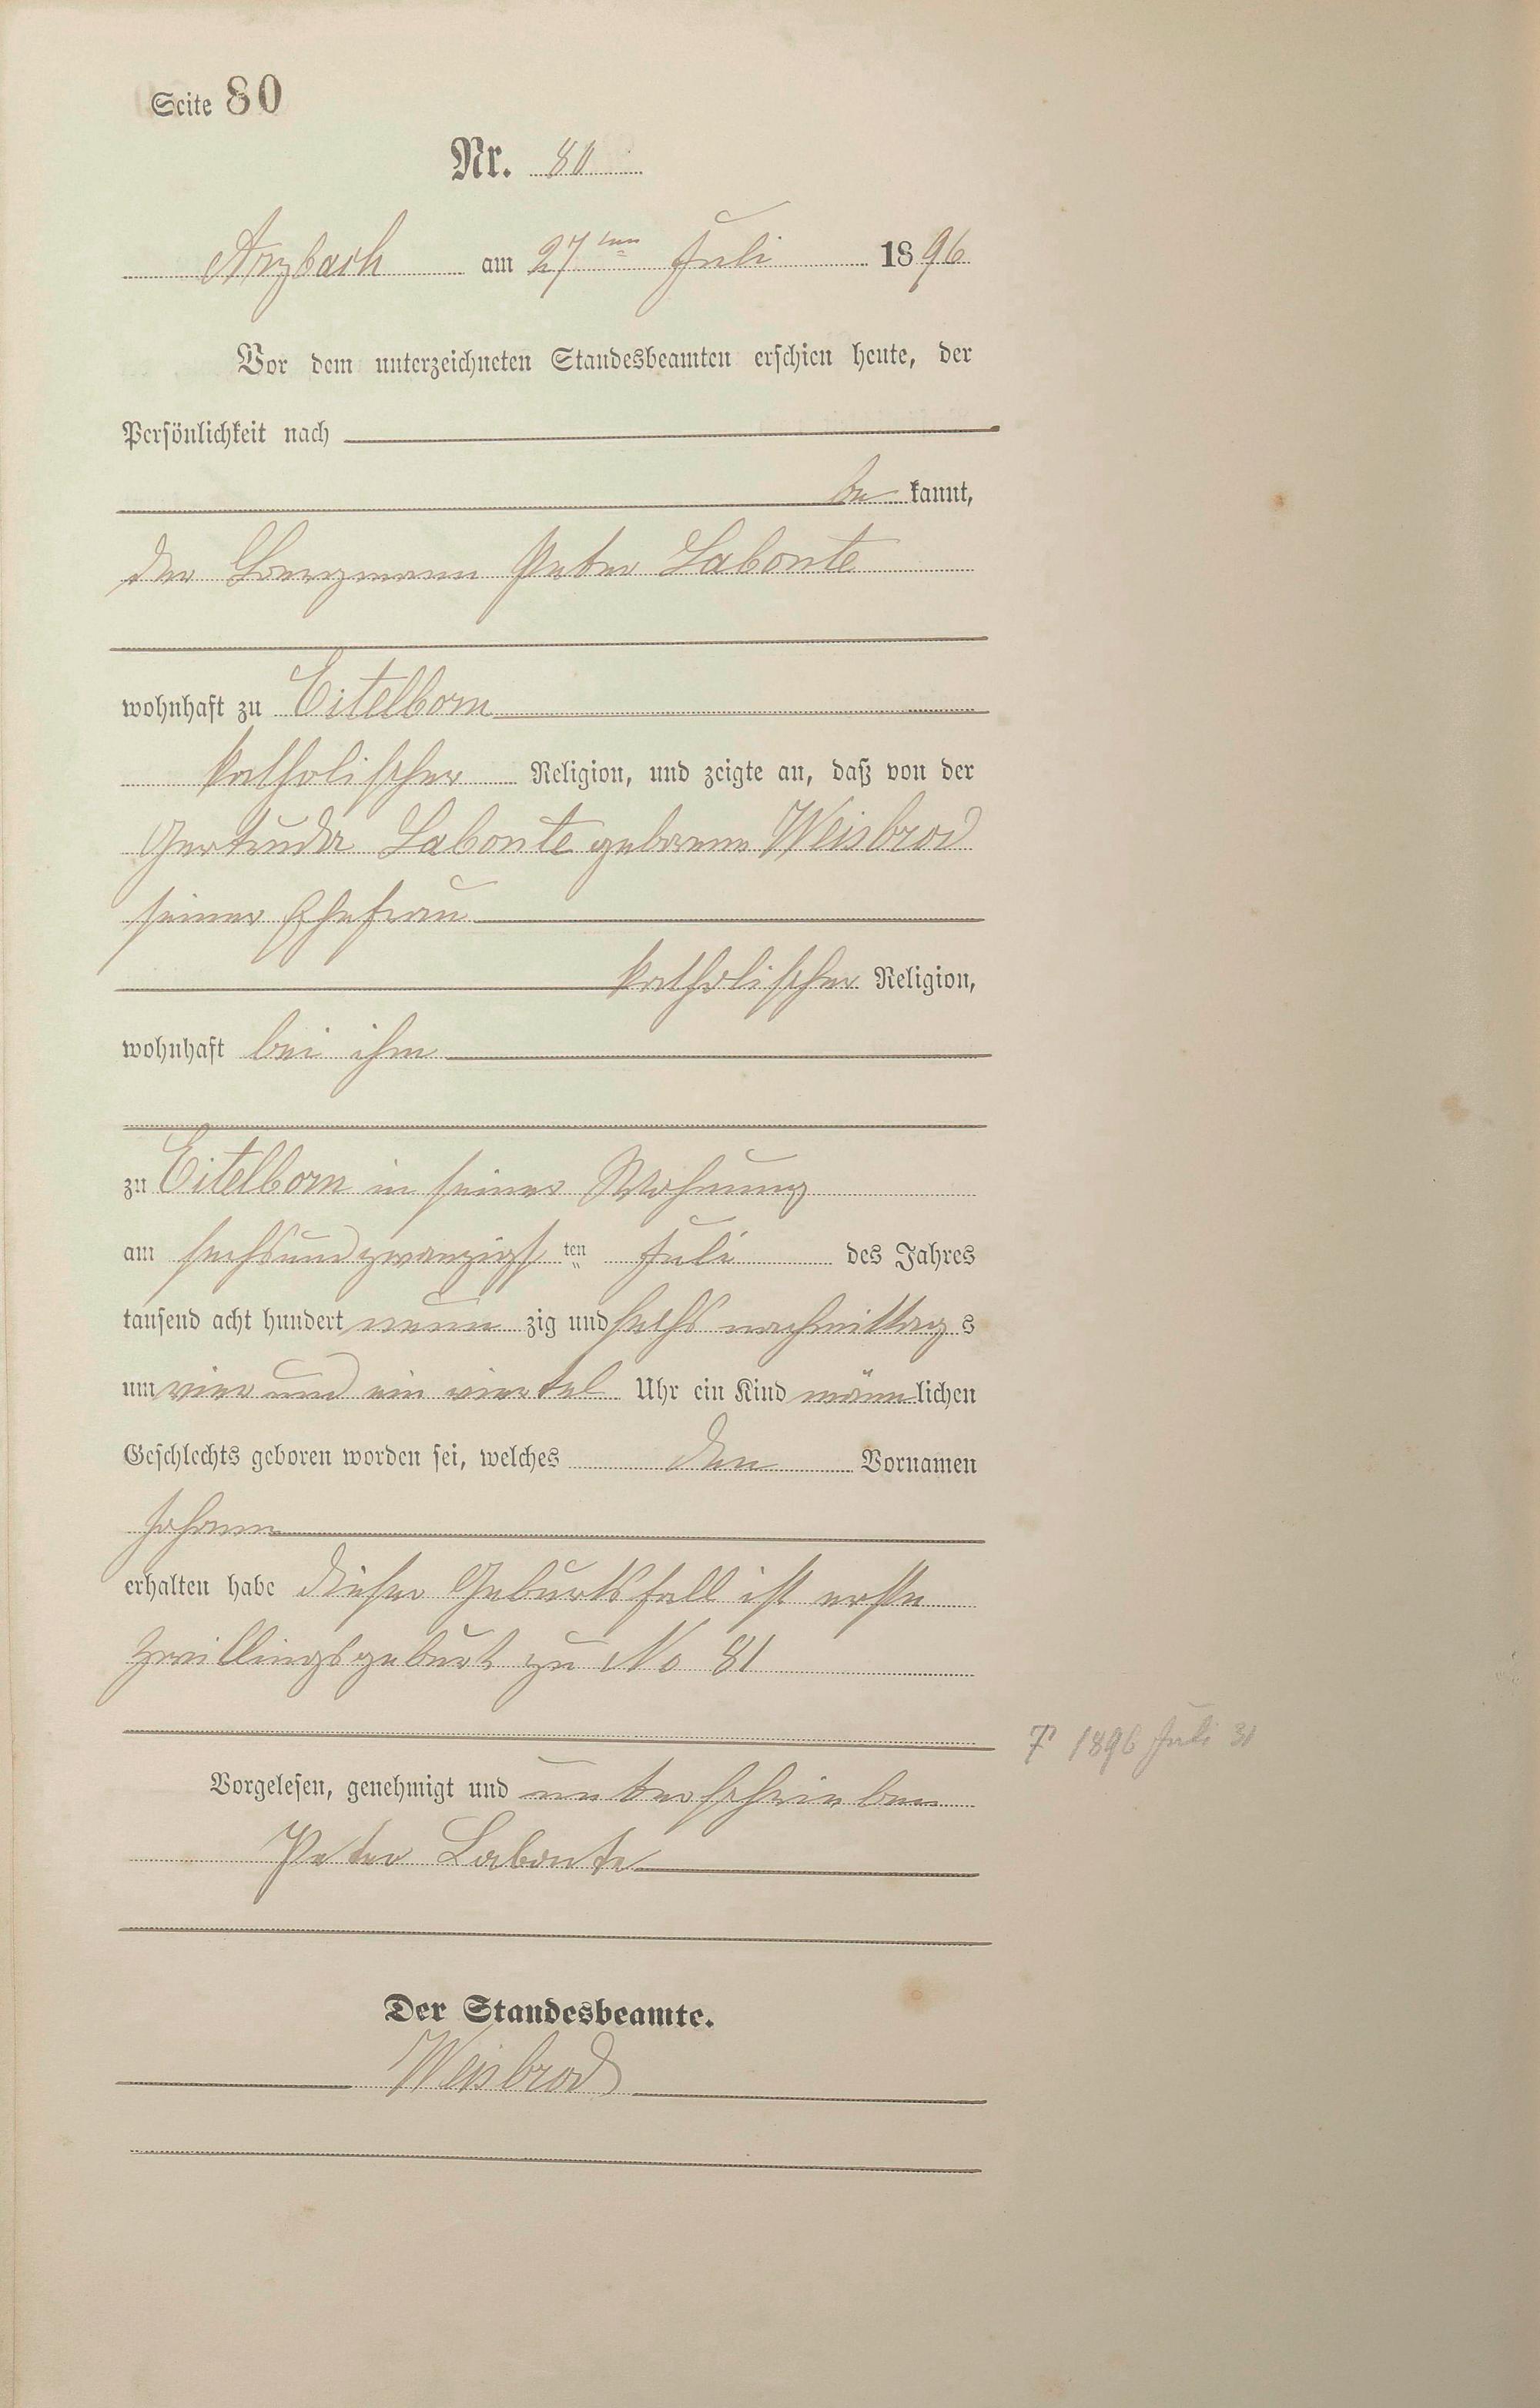 Seite 80
Nr. 80
Arzbach am 27ten Juli 1896
Vor dem unterzeichneten Standesbeamten erschien heute, der
Persönlichkeit nach
be kannt,
der Bergmann Peter Labonte
wohnhaft zu Eitelborn
katholischer Religion, und zeigte an, daß von der
Gertruda Labonte geborene Weisbrod
seiner Ehefrau
katholischer Religion,
wohnhaft bei ihm
zu Eitelborn in seiner Wohnung
am sechsundzwanzigsten Juli des Jahres
tausend acht hundert neun zig und sechs nachmittags
um vier und ein viertel Uhr ein Kind männlichen
Geschlechts geboren worden sei, welches den Vornamen
Johann
erhalten habe dieser Geburtsfall ist erste
Zwillingsgeburt zu No 81
† 1896 Juli 31
Vorgelesen, genehmigt und unterschrieben
Peter Labonte
Der Standesbeamte.
Weisbrod